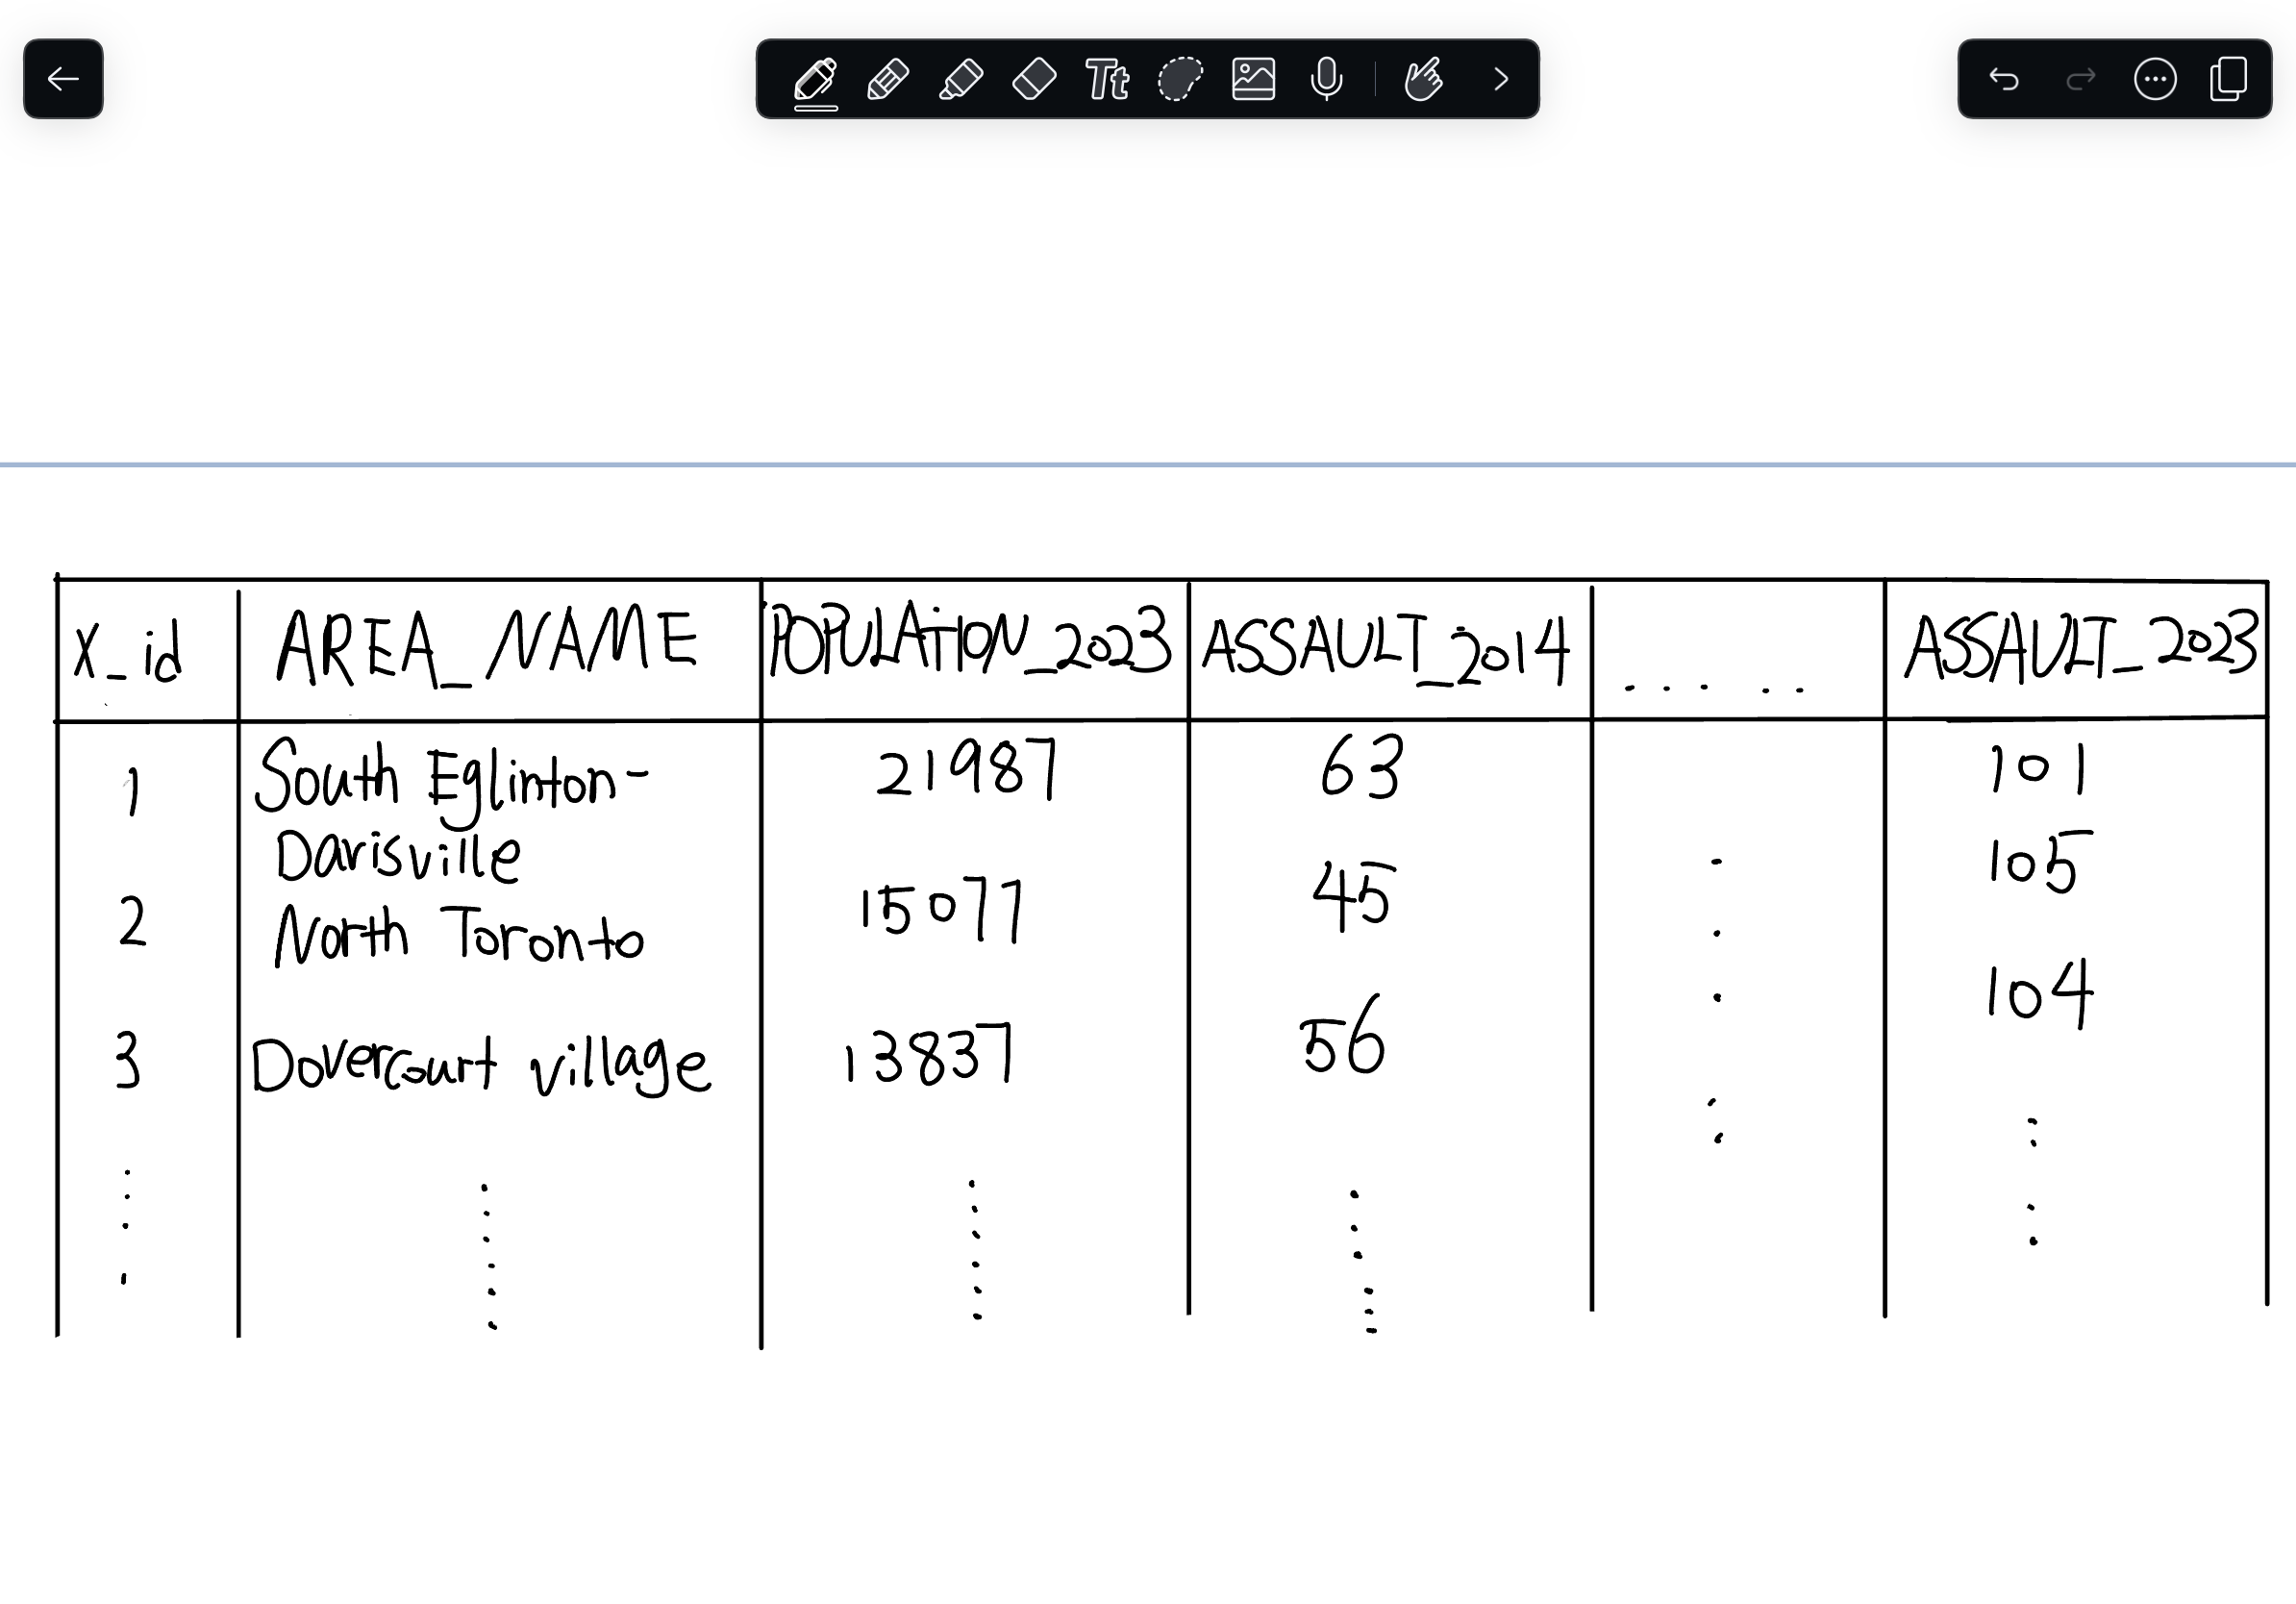 Tt
X_id AREA_NAME POPULATION_2023 ASSAULT_2014 ..... ASSAULT_2023
1 South Eglinton- 21987 63 101
Darisville
2 North Toronto 15077 45 105
3 Dovercourt village 13837 56 104